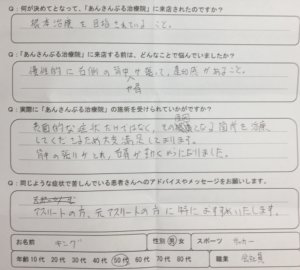 Q：何が決めてとなって、「あんさんぶる治療院」に来店されたのですか？
根本治療を目指されていること。
Q：「あんさんぶる治療院」に来店する前は、どんなことで悩んでいましたか？
慢性的に右側の背中が張って、違和感があること。
Q：実際に「あんさんぶる治療院」の施術を受けられていかがですか？
表面的な症状だけではなく、その原因となる箇所を治療
してくださるため大変満足しております。
背中の張りがとれ、
Q：同じような症状で苦しんでいる患者さんへのアドバイスやメッセージをお願いします。
アスリートの方、元アスリートの方に特におすすめいたします。
お名前 キング 性別 男 女 スポーツ サッカー
年齢 10代 20代 30代 40代 50代 60代 70代 80代 職業 会社員